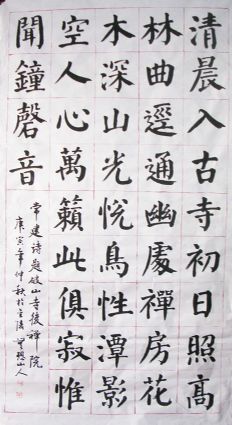 清晨入古寺初日照高
林曲逕通幽處禪房花
木深山光悅鳥性潭影
空人心萬籟此俱寂惟
聞鐘磬音
常建诗題破山寺後禪院
庚寅年仲秋於山人